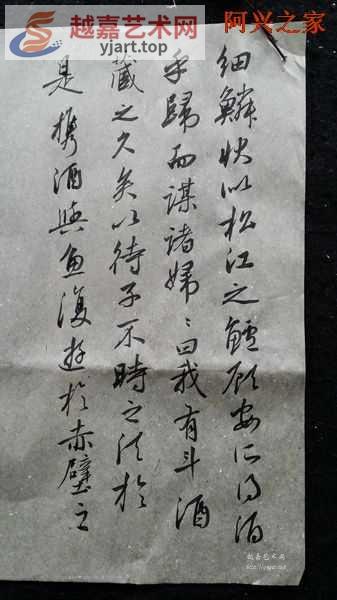 越嘉艺术网
yjart.top
阿兴之家
细鳞状似松江之鲈顾安所得酒
乎歸而謀诸婦〻曰我有斗酒
藏之久矣以待子不時之須於
是携酒與鱼復遊於赤壁之
越嘉艺术网